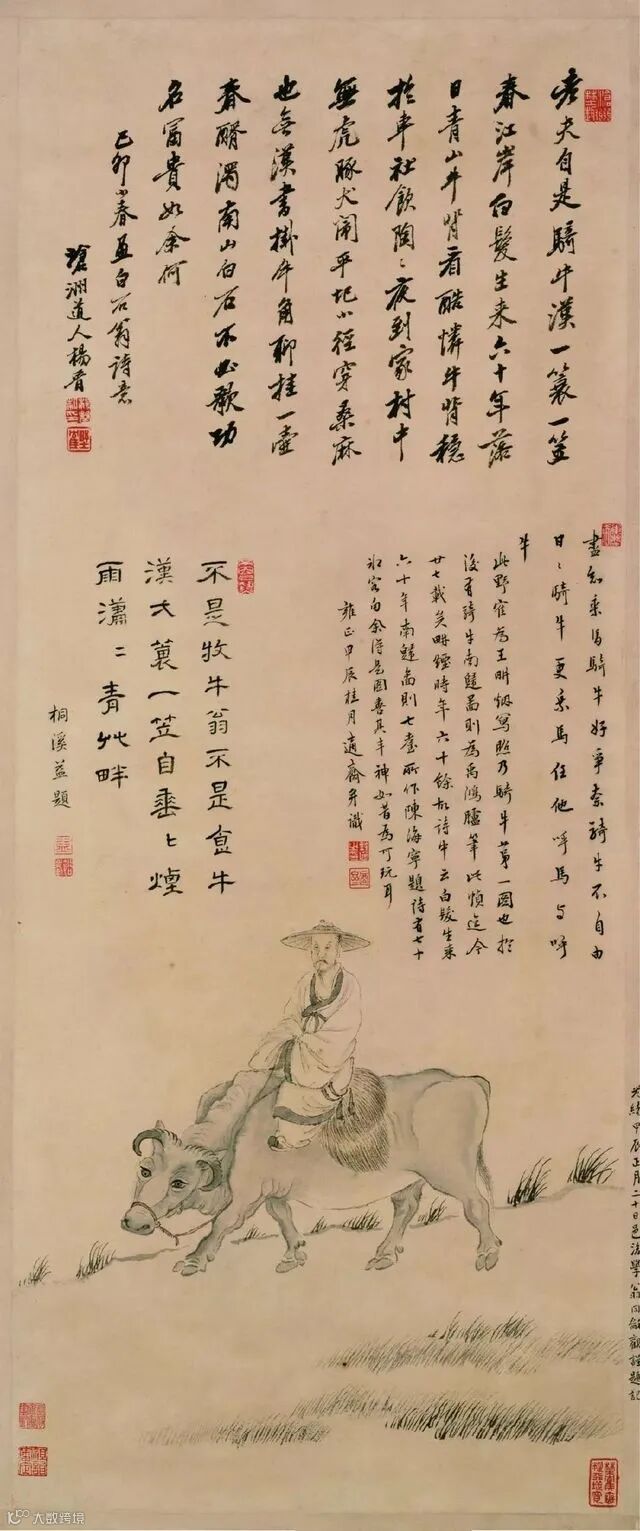 老夫自是騎牛漢一蓑一笠
春江岸白髮生来六十年落
日青山牛背看酷憐牛背穩
於車社飲陶〻夜到家村中
無虎豚犬鬧平地小徑穿桑麻
也無漢書掛牛角聊挂一壺
春醑濁南山白石不必歌功
名富貴如余何
己卯小春並白石翁詩意
瑲洲道人楊晉
盡知乘馬騎牛好爭奈騎牛不自由
日〻騎牛更乘馬任他呼馬与呼
牛
此野鶴為王畊烟寫照乃騎牛第一圖也於
後有騎牛南還啚則為禹鴻臚筆此幀迄今
廿七載矣畊煙時年六十餘故詩中云白髮生来
六十年南還啚則七耋所作陳海寧題詩有七十
余得是圖喜其丰神如昔為可玩耳
雍正甲辰桂月適齋并識
不是牧牛翁不是食牛
漢大蓑一笠自垂〻煙
雨瀟〻青艸畔
桐溪益題
光緒甲辰正月二十日邑後學翁同龢觀謹題記
大数跨境